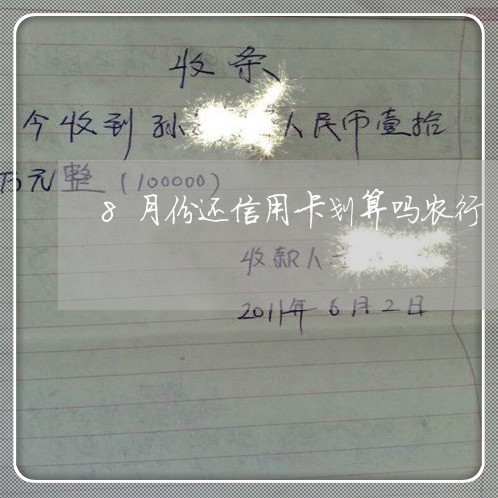 收条
今收到孙 人民币壹拾
万元整（100000）
8月份还信用卡划算吗农行
收款人
2011年6月2日